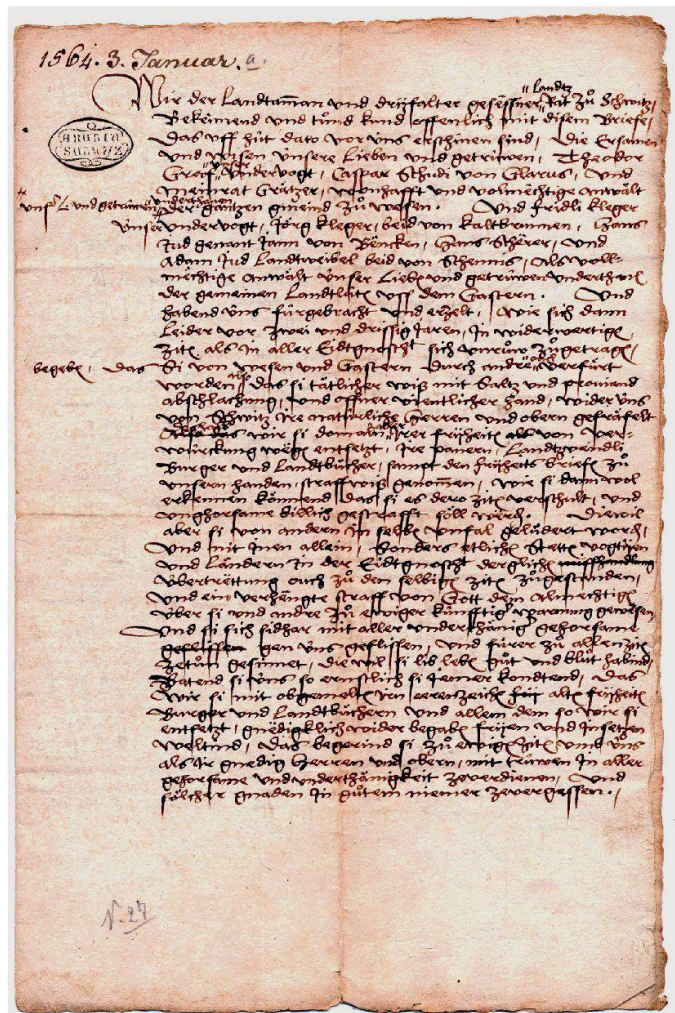 1564. 3. Januar. a.
landtz
Wir der Landtaman und dryfalter gesessner Rat zů Schwitz,
Bekennend und tůnd kund offenlich mit disem Brieffe,
Das uff hüt dato vor uns erschinen sind, Die Ersamen
und wisen unsere Lieben und getrüwen, Theodor
unser
Graf, undervogt, Caspar Schudi von Glarus, und
Meinrat Grätzer, wonhafft und volmechtige anwält
unser L. und getrüwen underthanen
der gantzen gmeind zů wesen. Und fridli kleger
unser undervogt, Jörg kleger, beid von kaltbrunnen, Hans
Jud genant Jann von Bencken, Hans Schärer, und
Adam Jud Landtweibel beid von Schennis, Als voll-
mechtige anwält unser Lieben und getrüwen underthanen
der gemeinen Landtlüten uff dem Gastern. Und
habend uns fürgebracht und erzelt, wie sich dann
Leider vor zwei und drissig Jaren, In widerwertigen
ziten als in aller Eidtgnoschafft sich unrůw zůgetragen,
begeben, das Si von wesen und Gastern durch andre verfürt
worden, das si tätlicher wiß mit Saltz und proviand
abschlachung, und offner vientlicher hand, wider uns
von Schwitz Ire natürliche Herren und obern gefräfelt
wir si domaln Irer fryheiten als von ver-
würckung wegen entsetzt, Ire panern, Landtzvendli
Burger und Landtbücher, sampt den fryheits brieffen zů
unsern handen, straff wiß genommen, wie si dann wol
erkennen könnend, das si es dero ziten verschult, und
unghorsame billich gestrafft söll werden. Diewil
aber si von andern in selben unfal geludert worden,
und mit Inen allein, sonders etlichen Stetten vogtyen
und Ländern in der Eidtgnoschafft derglichen mißhandlung
übertrettung ouch zů den selbigen ziten zůgestanden,
und ein verhengte straff von Gott dem Almechtigen
über si und andre zů ewiger künfftiger warnung gewesen
Und si sich sidhar mit aller underthänig gehorsame
geflissen gen uns geflissen, und fürer zů allen ziten
zetůn gesinnet, diewil si lib leben gůt und blůt habind,
Batend si uns so ernstlich si Jemer kondtend, Das
wir si mit obgemelten Iren eerenzeichen alten fryheiten
Burger und Landtbüchern und allem dem so wir si
entsetzt, gnedigklich wider begaben fryen und Insetzen
weltind, Das begerind si zů ewigen ziten umb uns
als Ir gnedig Herren und obern, mit trüwen In aller
gehorsame und underthänigkeit zeverdienen, Und
sölcher gnaden In gůtem niemer zevergessen.
N. 27